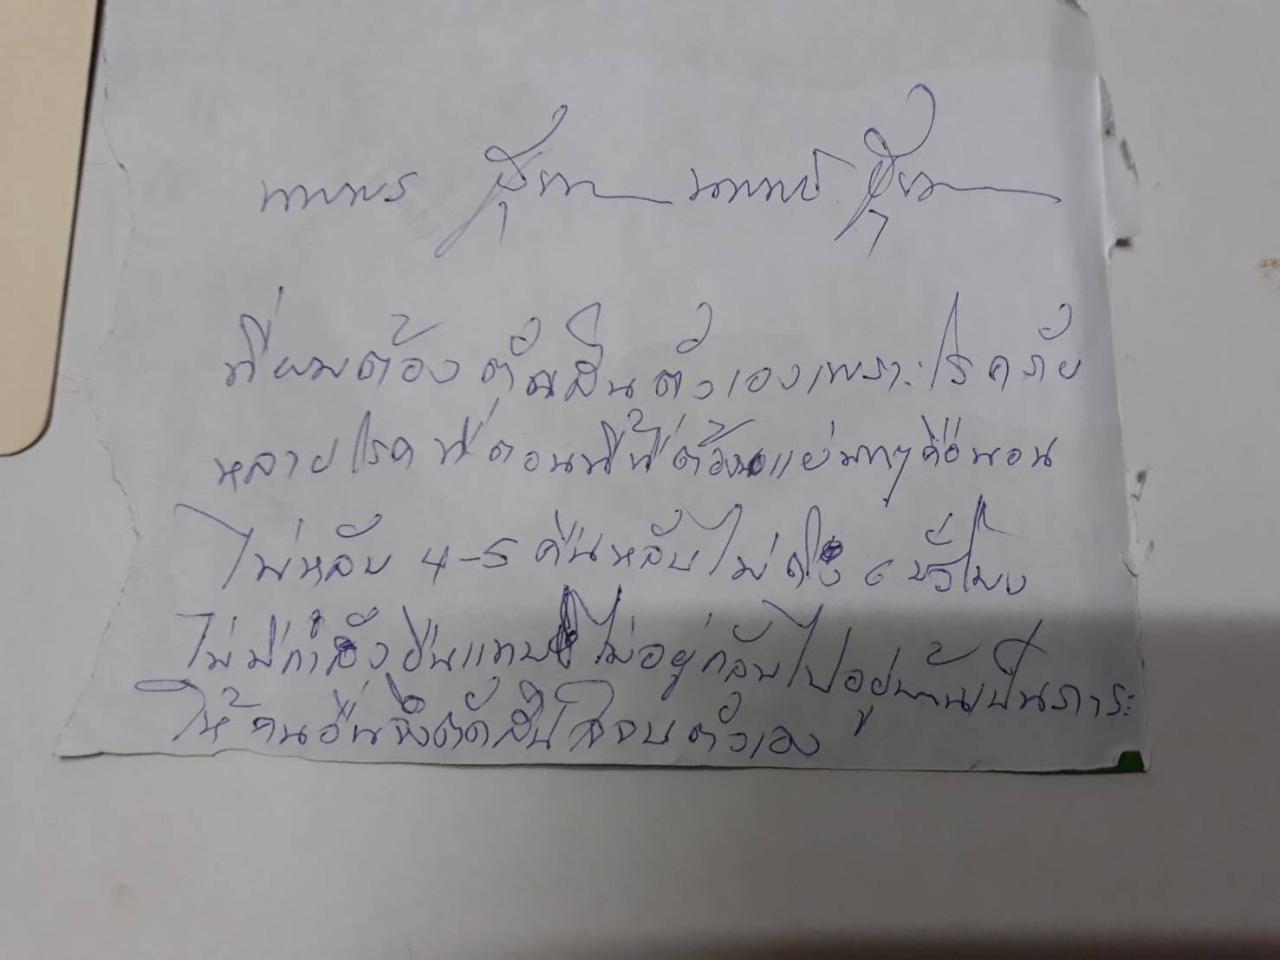 ที่ผมต้องตัดสินตัวเองเพราะโรคภัย
หลายโรค ที่ตอนนี้ที่ต้องแย่มากๆคือนอน
ไม่หลับ 4-5 คืนหลับไม่ถึง 6 ชั่วโมง
ไม่มีกำลังยืนแทบไม่อยู่กลับไปอยู่บ้านเป็นภาระ
ให้คนอื่นจึงตัดสินใจจบตัวเอง